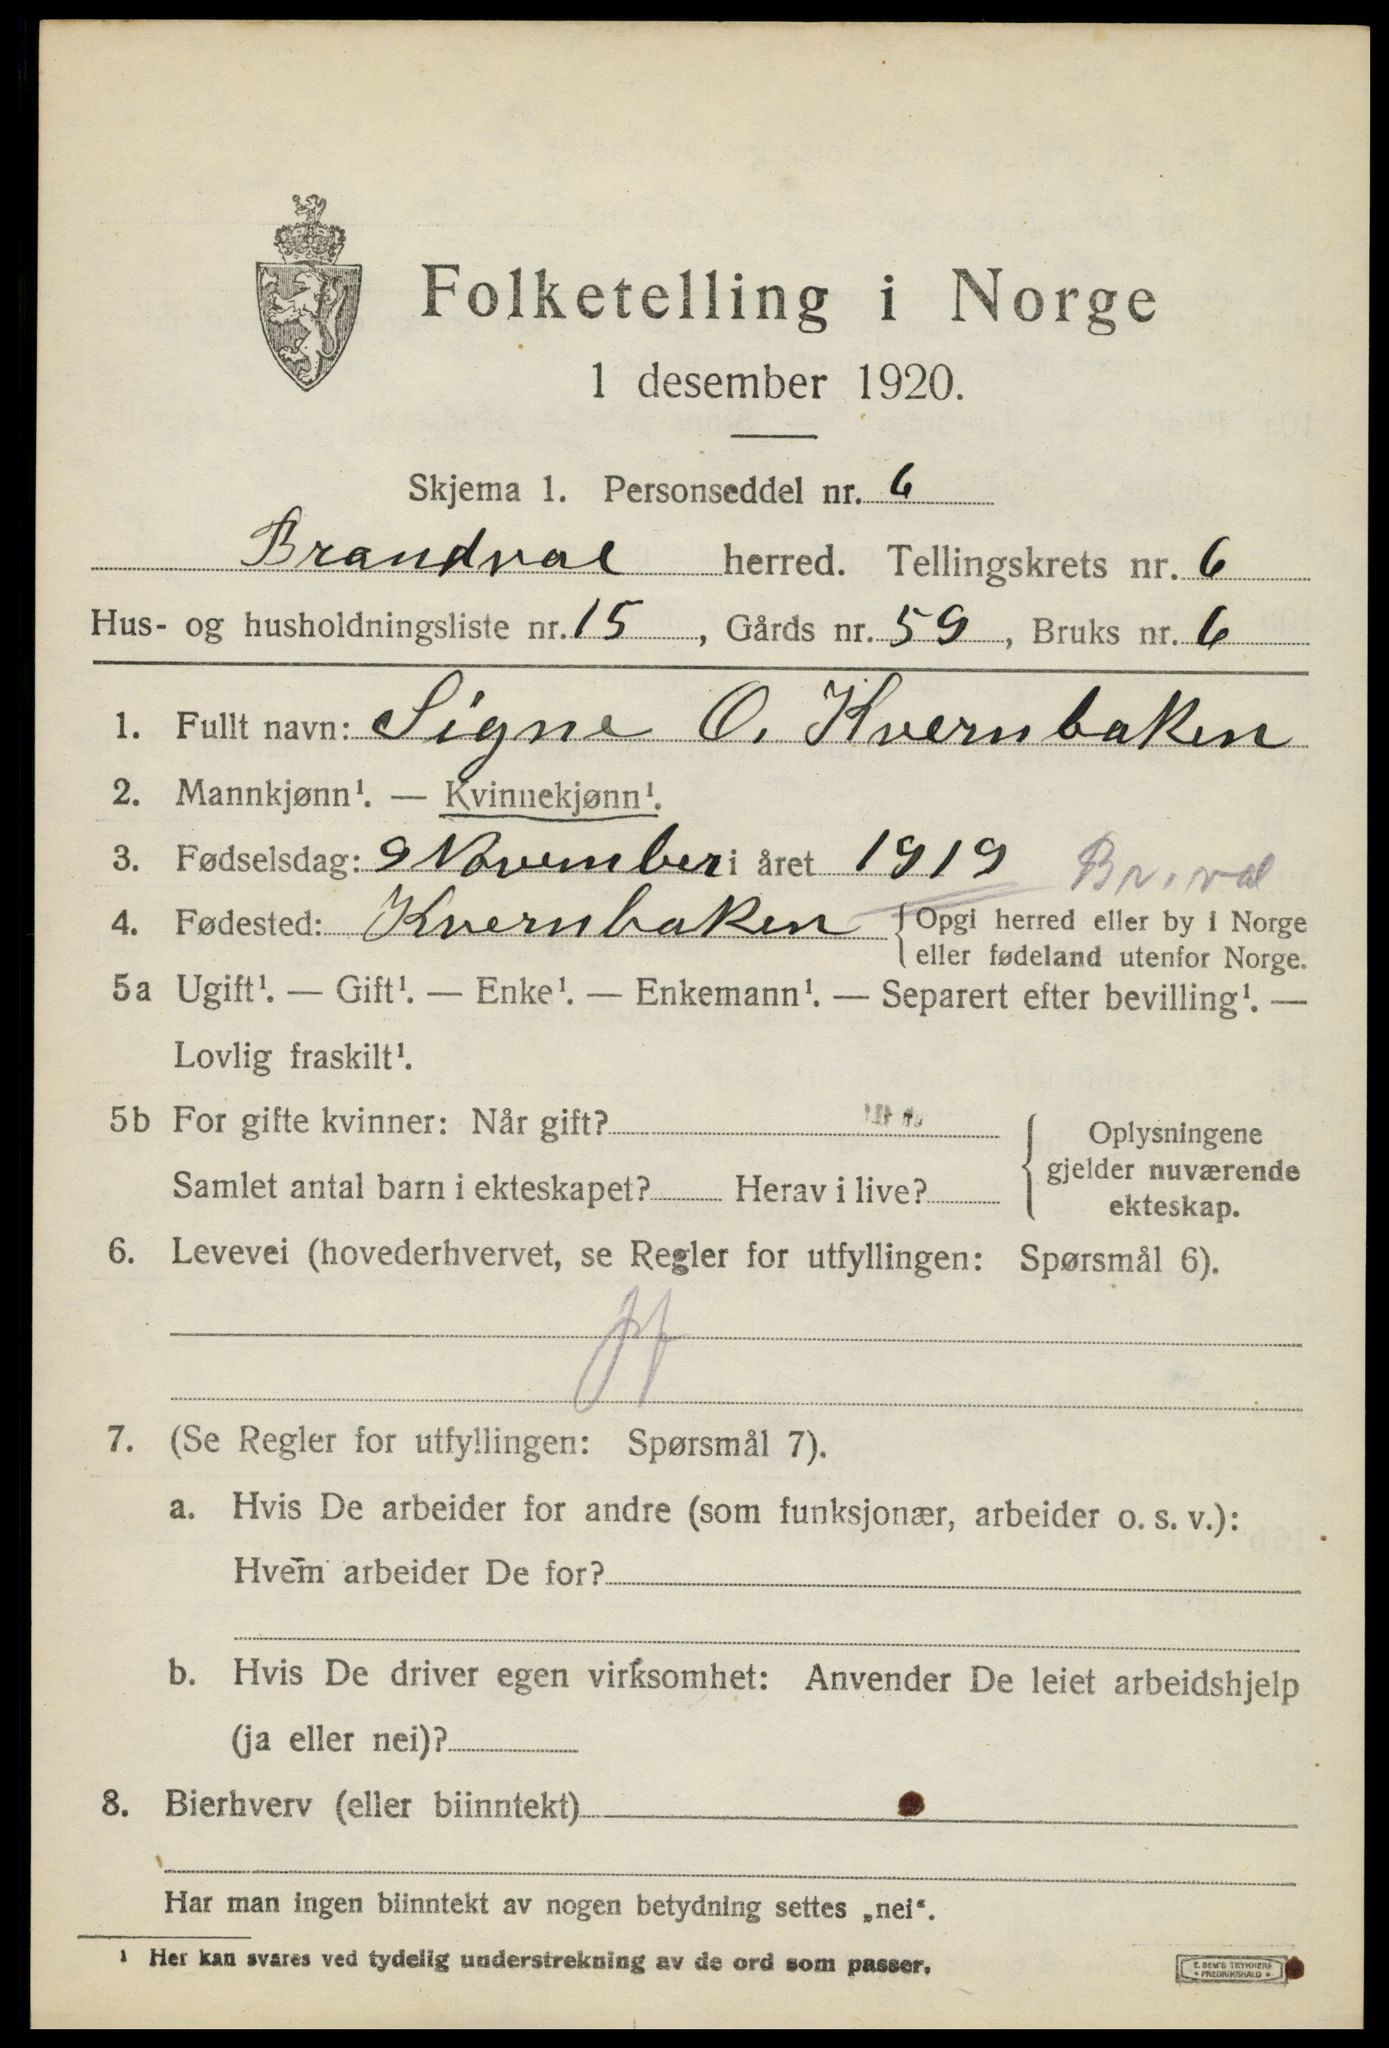 Folketelling i Norge
1 desember 1920.
Skjema 1. Personseddel nr. 6
Brandval herred. Tellingskrets nr. 6
Hus- og husholdningsliste nr. 15, Gårds nr. 59, Bruks nr. 6
1. Fullt navn: Signe O. Kvernbaken
2. Mannkjønn¹. — Kvinnekjønn¹.
3. Fødselsdag: 9 November i året 1919 Br.val
4. Fødested: Kvernbaken { Opgi herred eller by i Norge
eller fødeland utenfor Norge.
5a Ugift¹. — Gift¹. — Enke¹. — Enkemann¹. — Separert efter bevilling¹. —
Lovlig fraskilt¹.
5b For gifte kvinner: Når gift?
Samlet antal barn i ekteskapet? Herav i live?
{ Oplysningene
gjelder nuværende
ekteskap.
6. Levevei (hovederhvervet, se Regler for utfyllingen: Spørsmål 6).
7. (Se Regler for utfyllingen: Spørsmål 7).
a. Hvis De arbeider for andre (som funksjonær, arbeider o. s. v.):
Hvem arbeider De for?
b. Hvis De driver egen virksomhet: Anvender De leiet arbeidshjelp
(ja eller nei)?
8. Bierhverv (eller biinntekt)
Har man ingen biinntekt av nogen betydning settes „nei“.
¹ Her kan svares ved tydelig understrekning av de ord som passer.
E. SEM'S TRYKKERI
• FREDRIKSHALD •